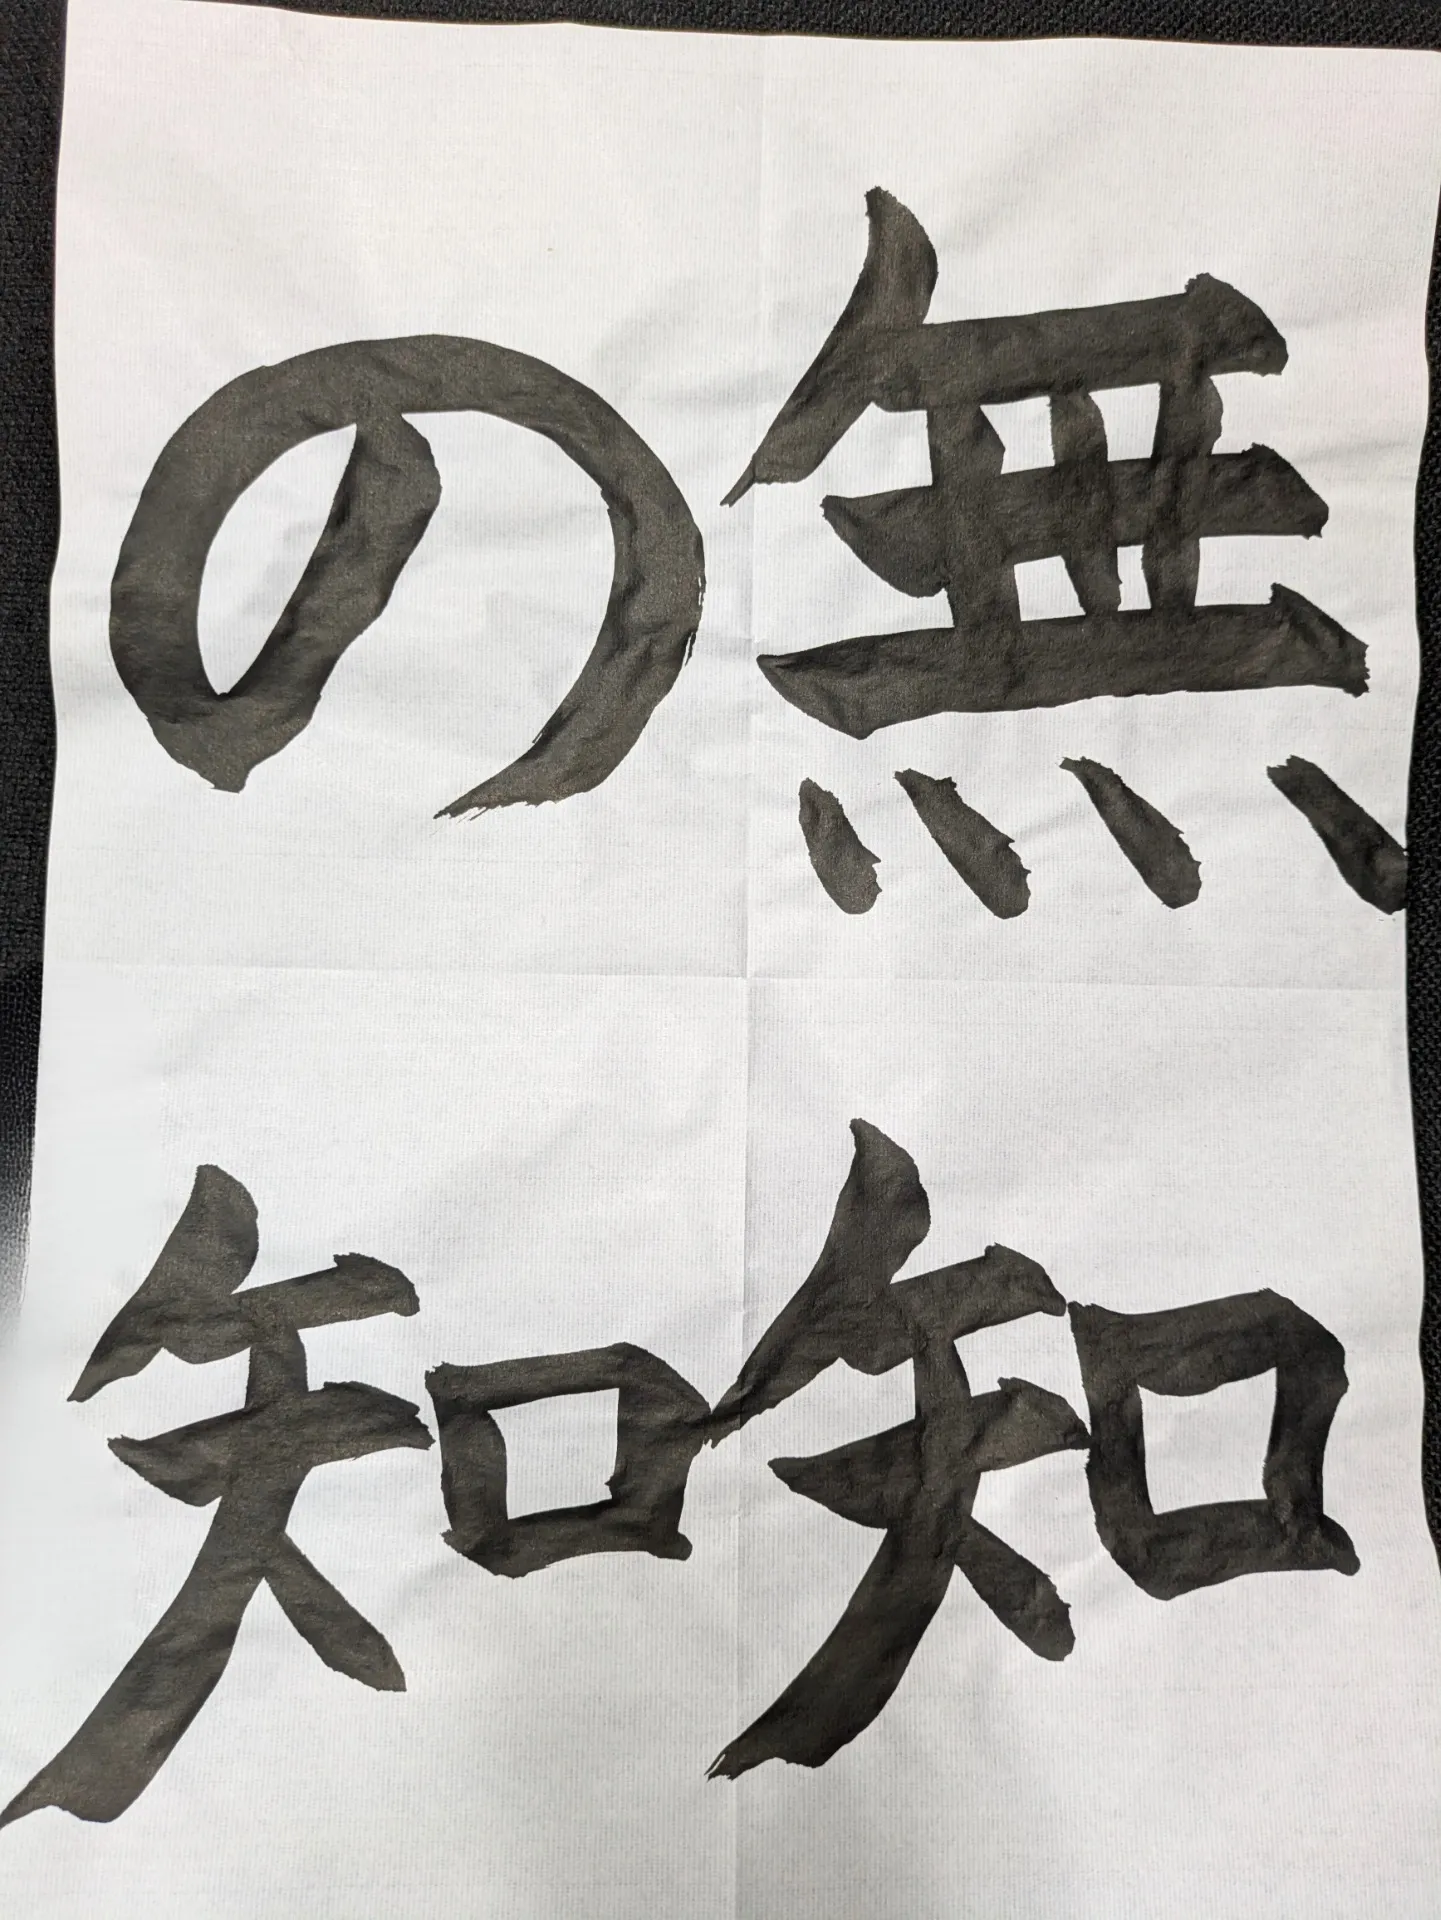 無知
の知